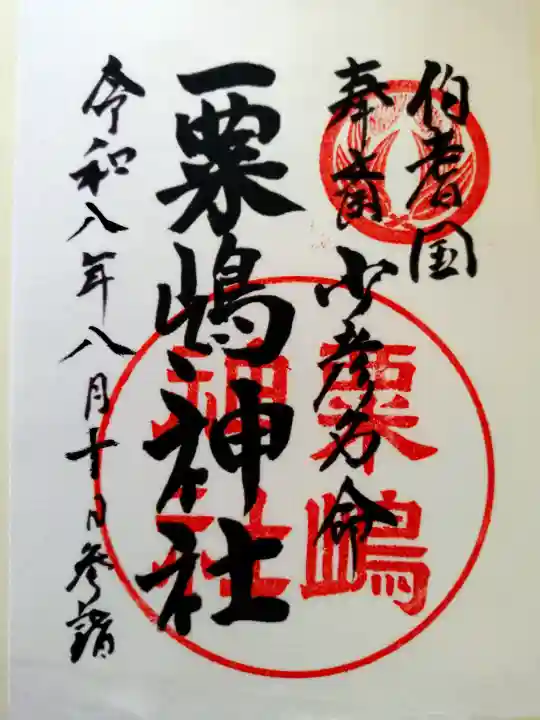 伯耆国
奉斎
少彦名命
粟嶋神社
令和八年八月十日参詣
粟嶋
神社